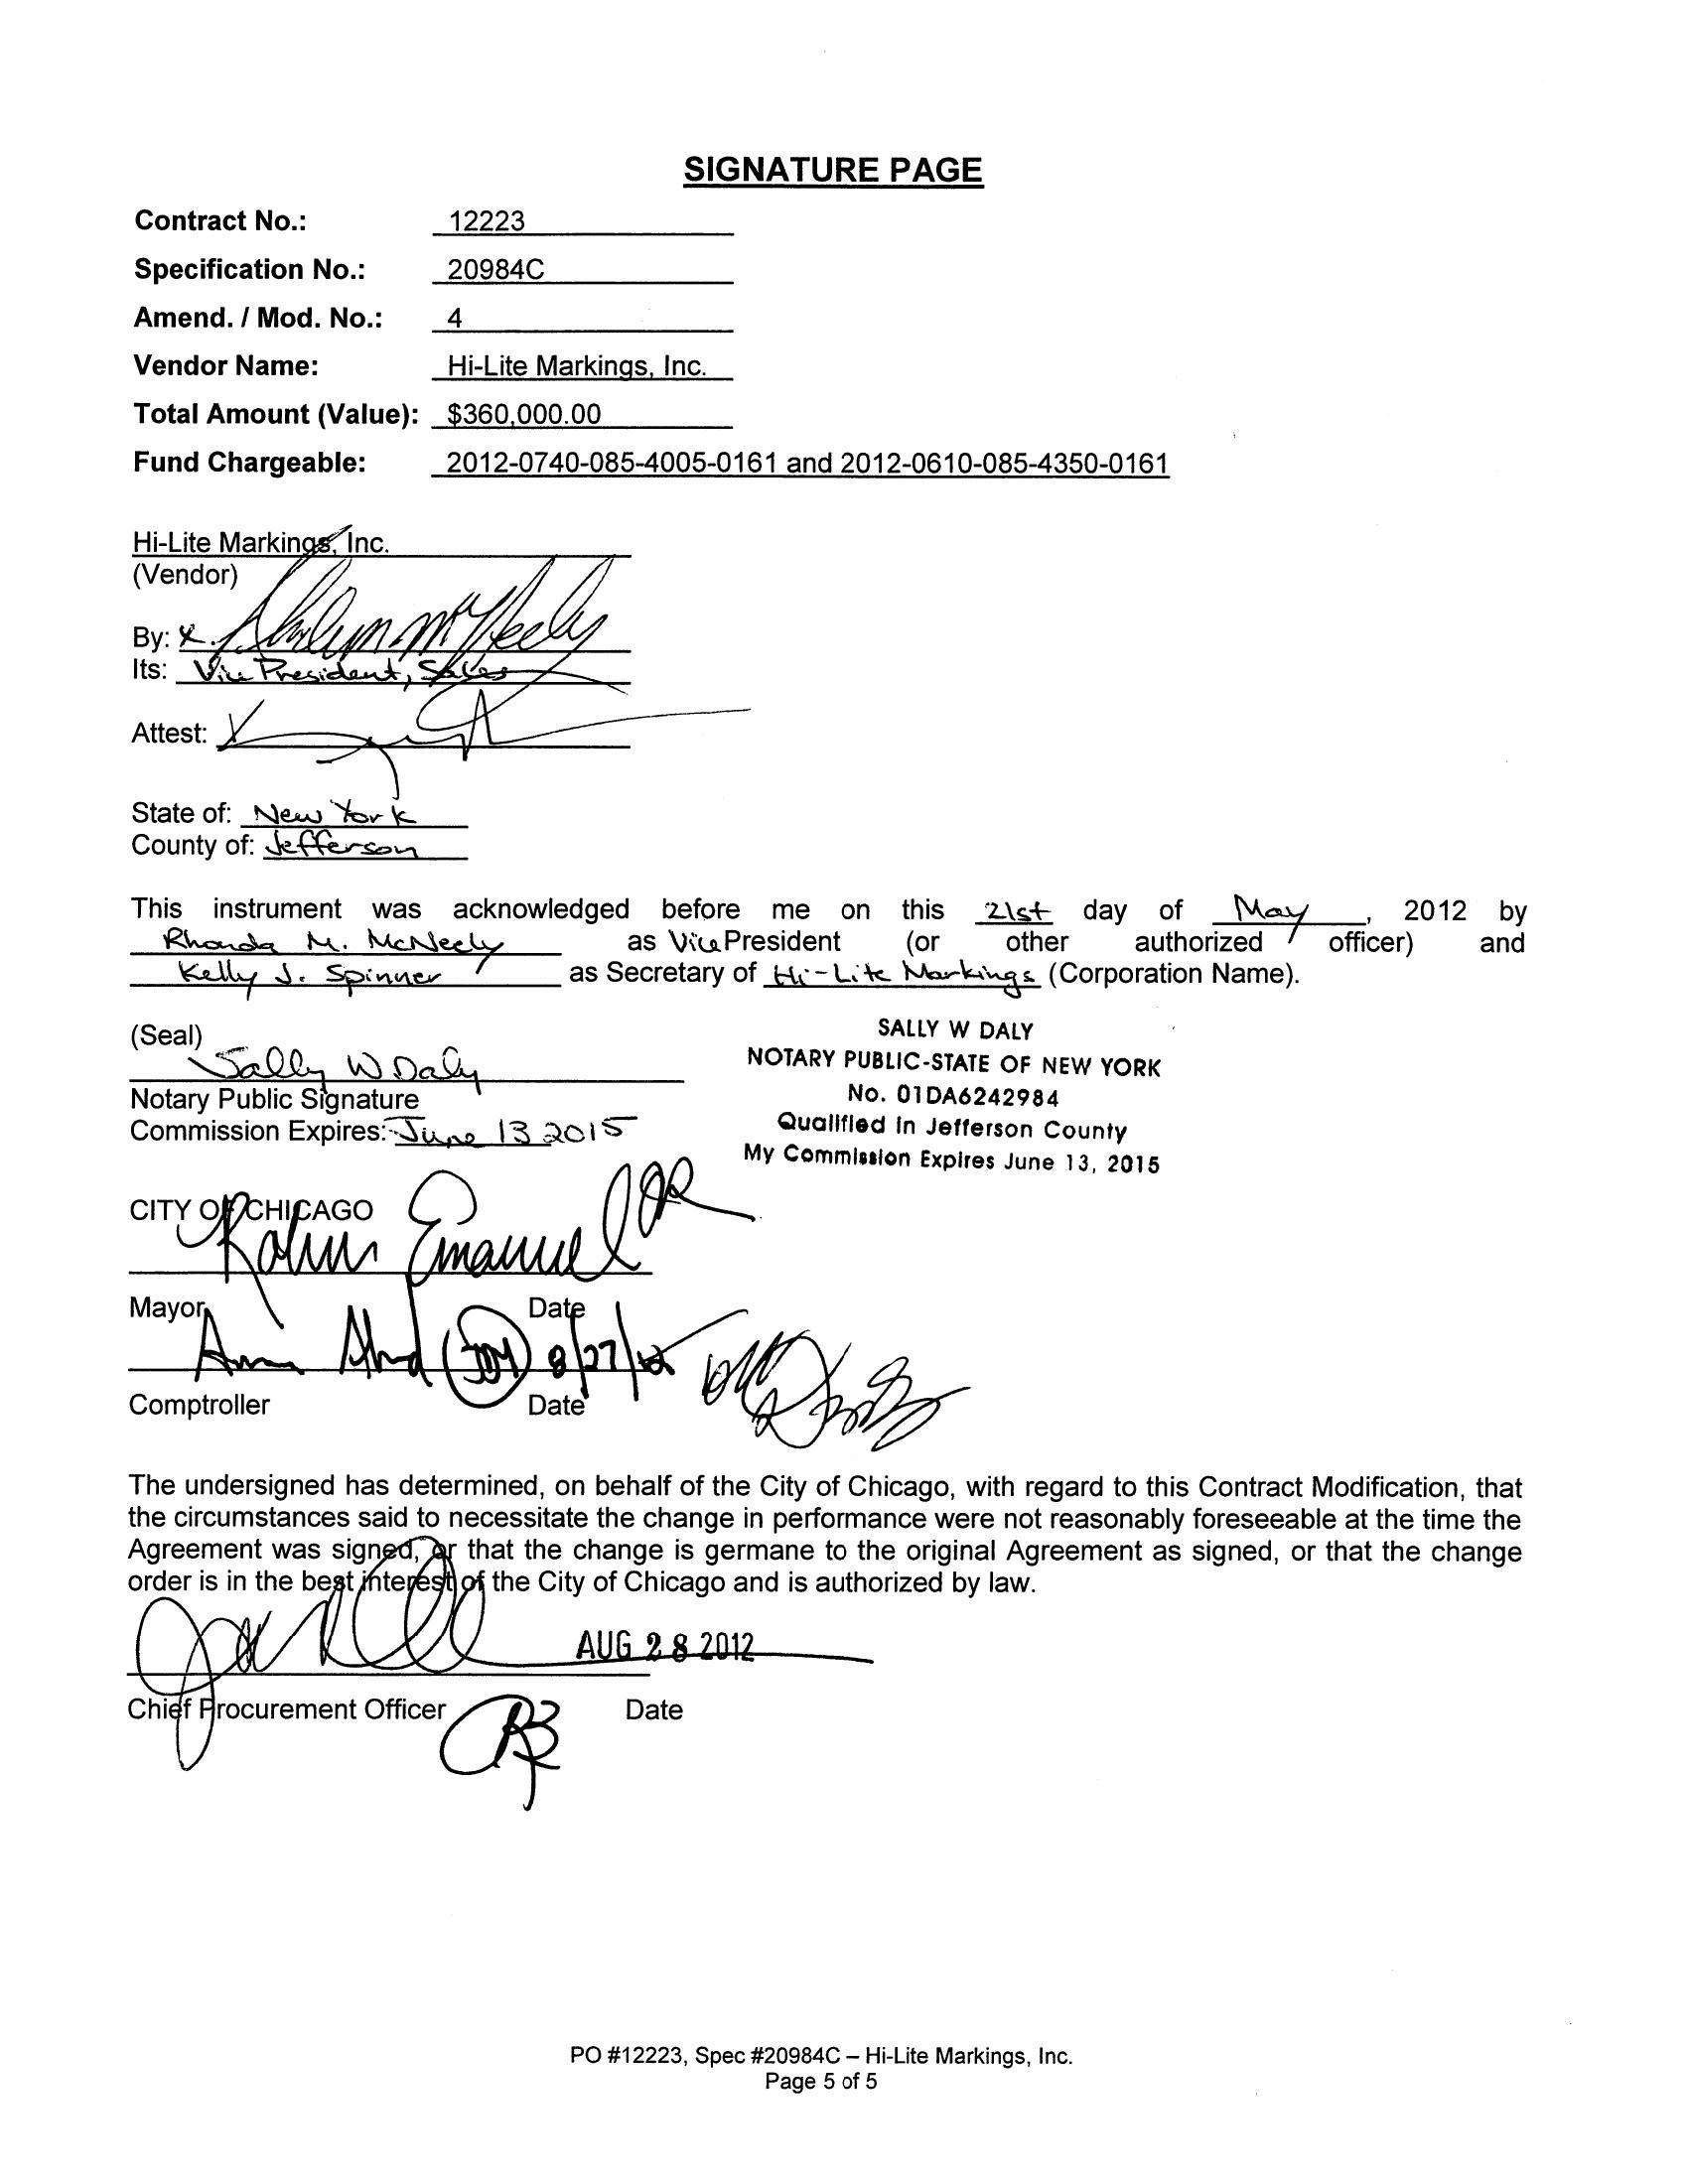 SIGNATURE PAGE
Contract No.: 12223
Specification No.: 20984C
Amend. / Mod. No.: 4
Vendor Name: Hi-Lite Markings, Inc.
Total Amount (Value): $360,000.00
Fund Chargeable: 2012-0740-085-4005-0161 and 2012-0610-085-4350-0161
Hi-Lite Markings, Inc.
(Vendor)
By: x McNeely
Its: Vice President, Sales
Attest: X
State of: New York
County of: Jefferson
This instrument was acknowledged before me on this 21st day of May, 2012 by
Rhonda M. McNeely as Vice President (or other authorized officer) and
Kelly J. Spinner as Secretary of Hi-Lite Markings (Corporation Name).
(Seal)
Sally W Daly
Notary Public Signature
Commission Expires: June 13 2015
SALLY W DALY
NOTARY PUBLIC-STATE OF NEW YORK
No. 01DA6242984
Qualified in Jefferson County
My Commission Expires June 13, 2015
CITY OF CHICAGO
Rahm Emanuel
Mayor Date
8/27/12
Comptroller Date
The undersigned has determined, on behalf of the City of Chicago, with regard to this Contract Modification, that
the circumstances said to necessitate the change in performance were not reasonably foreseeable at the time the
Agreement was signed, or that the change is germane to the original Agreement as signed, or that the change
order is in the best interest of the City of Chicago and is authorized by law.
AUG 28 2012
Chief Procurement Officer Date
PO #12223, Spec #20984C – Hi-Lite Markings, Inc.
Page 5 of 5